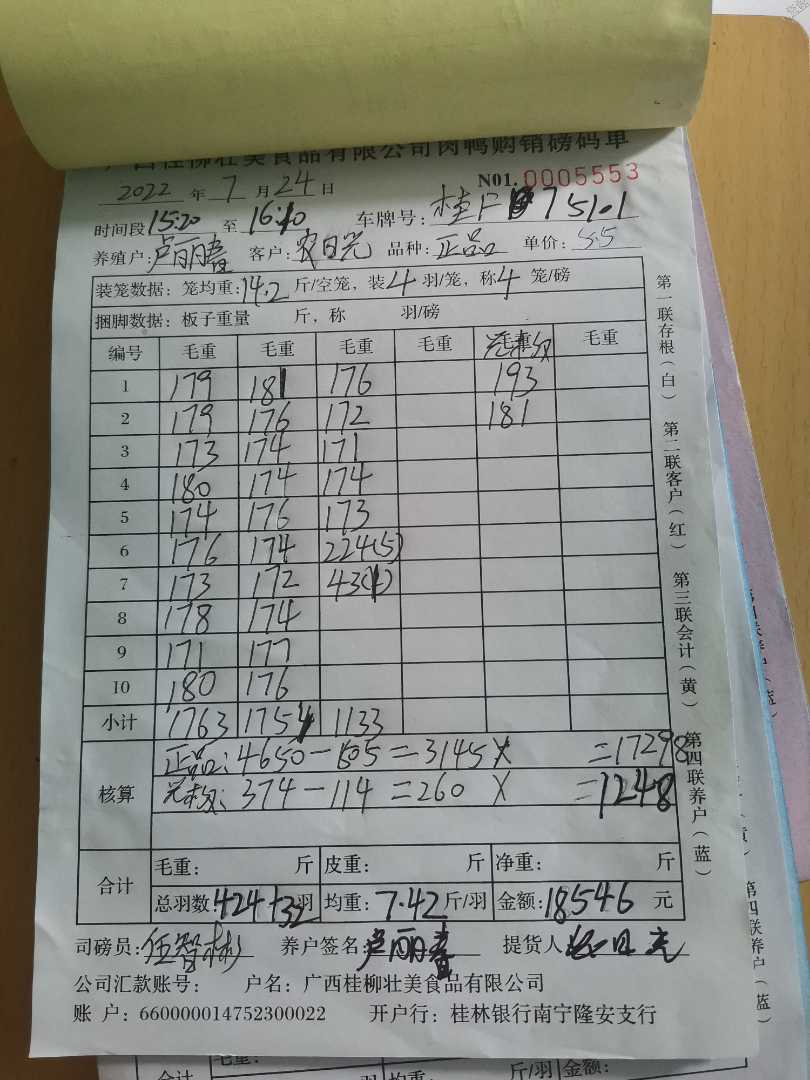 广西桂柳壮美食品有限公司肉鸭购销磅码单
2022 年 7 月 24 日 N01. 0005553
时间段 15:20 至 16:10 车牌号: 7510.1
养殖户: 卢丽春 客户: 农日光 品种: 正品 单价: 5.5
装笼数据: 笼均重: 14.2 斤/空笼, 装 4 羽/笼, 称 4 笼/磅
捆脚数据: 板子重量 斤, 称 羽/磅
编号 毛重 毛重 毛重 毛重 毛重
1 179 181 176 193
2 179 176 172 181
3 173 174 171
4 180 174 174
5 174 176 173
6 176 174 224(5)
7 173 172 43(1)
8 178 174
9 171 177
10 180 176
小计 1763 1754 1133
核算 正品: 4650-1505=3145× =17298
374-114=260 × =1248
合计 毛重: 斤 皮重: 斤 净重: 斤
总羽数 424+32 羽 均重: 7.42 斤/羽 金额: 18546 元
司磅员: 任智彬 养户签名: 卢丽春 提货人: 农日光
公司汇款账号: 户名: 广西桂柳壮美食品有限公司
账 户: 660000014752300022 开户行: 桂林银行南宁隆安支行
第一联存根(白) 第二联客户(红) 第三联会计(黄) 第四联养户(蓝)